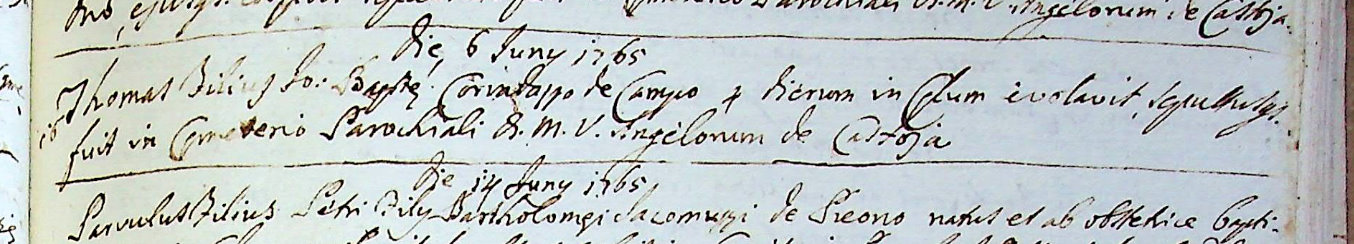 Parochiali B. M. V. Angelorum de Castoja.
Die 6 Juny 1765
Thomas Filius Jo: Bapte Corindappo de Campo 4 dierum in Celum evolavit, sepultusq.
fuit in Cemeterio Parochiali B. M. V. Angelorum de Castoja
Die 14 Juny 1765
Parvulus Filius Petri Filij Bartholomei Jacomuzzi de Preono natus et ab obstetrice bapti-